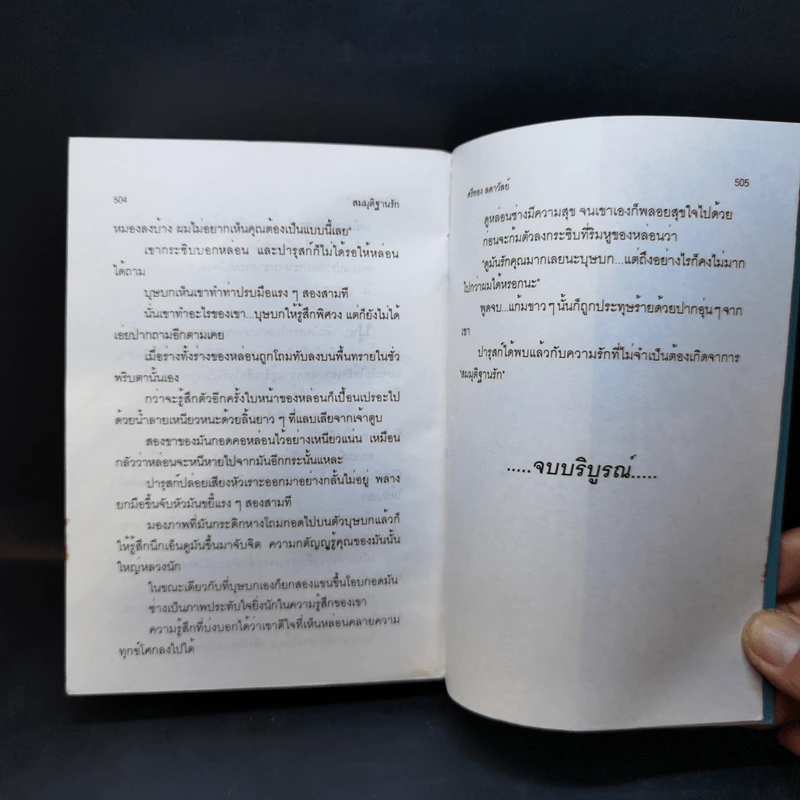 504
สมมุติฐานรัก
หมองลงบ้าง ผมไม่อยากเห็นคุณต้องเป็นแบบนี้เลย"
เขากระซิบบอกหล่อน และปารุสก์ก็ไม่ได้รอให้หล่อน
ได้ถาม
บุษบกเห็นเขาทำท่าปรบมือแรง ๆ สองสามที
นั่นเขาทำอะไรของเขา...บุษบกให้รู้สึกพิศวง แต่ก็ยังไม่ได้
เอ่ยปากถามอีกตามเคย
เมื่อร่างทั้งร่างของหล่อนถูกโถมทับลงบนพื้นทรายในชั่ว
พริบตานั้นเอง
กว่าจะรู้สึกตัวอีกครั้งใบหน้าของหล่อนก็เปื้อนเปรอะไป
ด้วยน้ำลายเหนียวหนะด้วยลิ้นยาว ๆ ที่แลบเลียจากเจ้าตูบ
สองขาของมันกอดคอหล่อนไว้อย่างเหนียวแน่น เหมือน
กลัวว่าหล่อนจะหนีหายไปจากมันอีกกระนั้นแหละ
ปารุสก์ปล่อยเสียงหัวเราะออกมาอย่างกลั้นไม่อยู่ พลาง
ยกมือขึ้นจับหัวมันขยี้แรง ๆ สองสามที
มองภาพที่มันกระดิกหางโถมกอดไปบนตัวบุษบกแล้วก็
ให้รู้สึกนึกเอ็นดูมันขึ้นมาจับจิต ความกตัญญูรู้คุณของมันนั้น
ใหญ่หลวงนัก
ในขณะเดียวกับที่บุษบกเองก็ยกสองแขนขึ้นโอบกอดมัน
ช่างเป็นภาพประทับใจยิ่งนักในความรู้สึกของเขา
ความรู้สึกที่บ่งบอกได้ว่าเขาดีใจที่เห็นหล่อนคลายความ
ทุกข์โศกลงไปได้
ศรีทอง ลดาวัลย์
505
ดูหล่อนช่างมีความสุข จนเขาเองก็พลอยสุขใจไปด้วย
ก่อนจะก้มตัวลงกระซิบที่ริมหูของหล่อนว่า
"ตูมันรักคุณมากเลยนะบุษบก...แต่ถึงอย่างไรก็คงไม่มาก
ไปกว่าผมได้หรอกนะ"
พูดจบ...แก้มขาว ๆ นั้นก็ถูกประทุษร้ายด้วยปากอุ่นๆ จาก
เขา
ปารุสก์ได้พบแล้วกับความรักที่ไม่จำเป็นต้องเกิดจากการ
"สมมุติฐานรัก"
.....จบบริบูรณ์.....